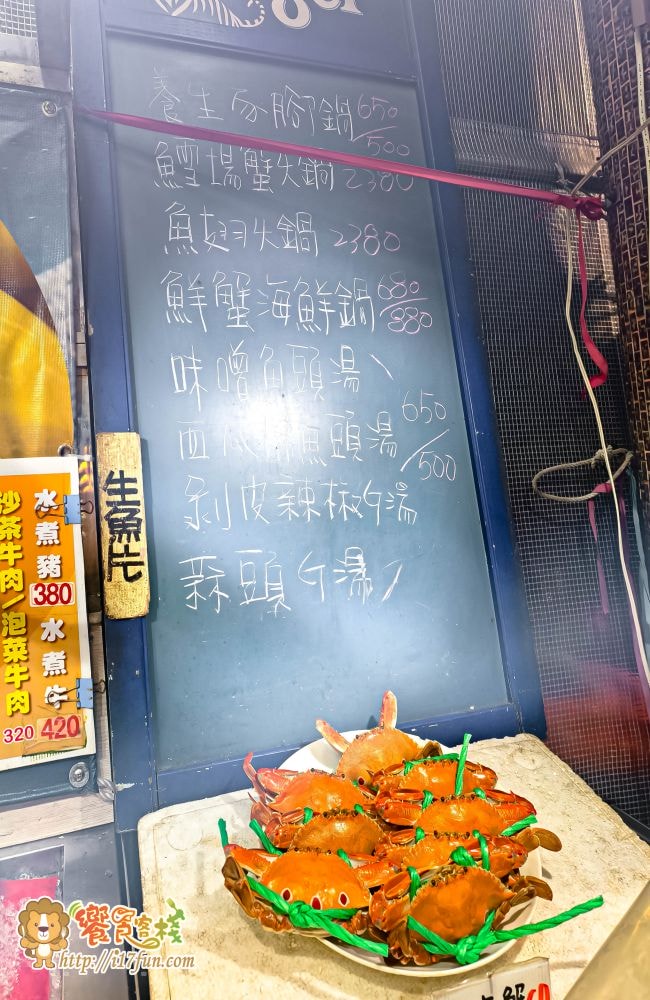 養生豕腳鍋 650/500
鱈場蟹火鍋 2380
魚翅火鍋 2380
鮮蟹海鮮鍋 680/880
味噌魚頭湯
魚頭湯 650/500
剝皮辣椒G湯
蒜頭G湯
生魚片
水煮豬 380
水煮牛 420
沙茶牛肉/泡菜牛肉 320
饗食客棧
http://i17fun.com